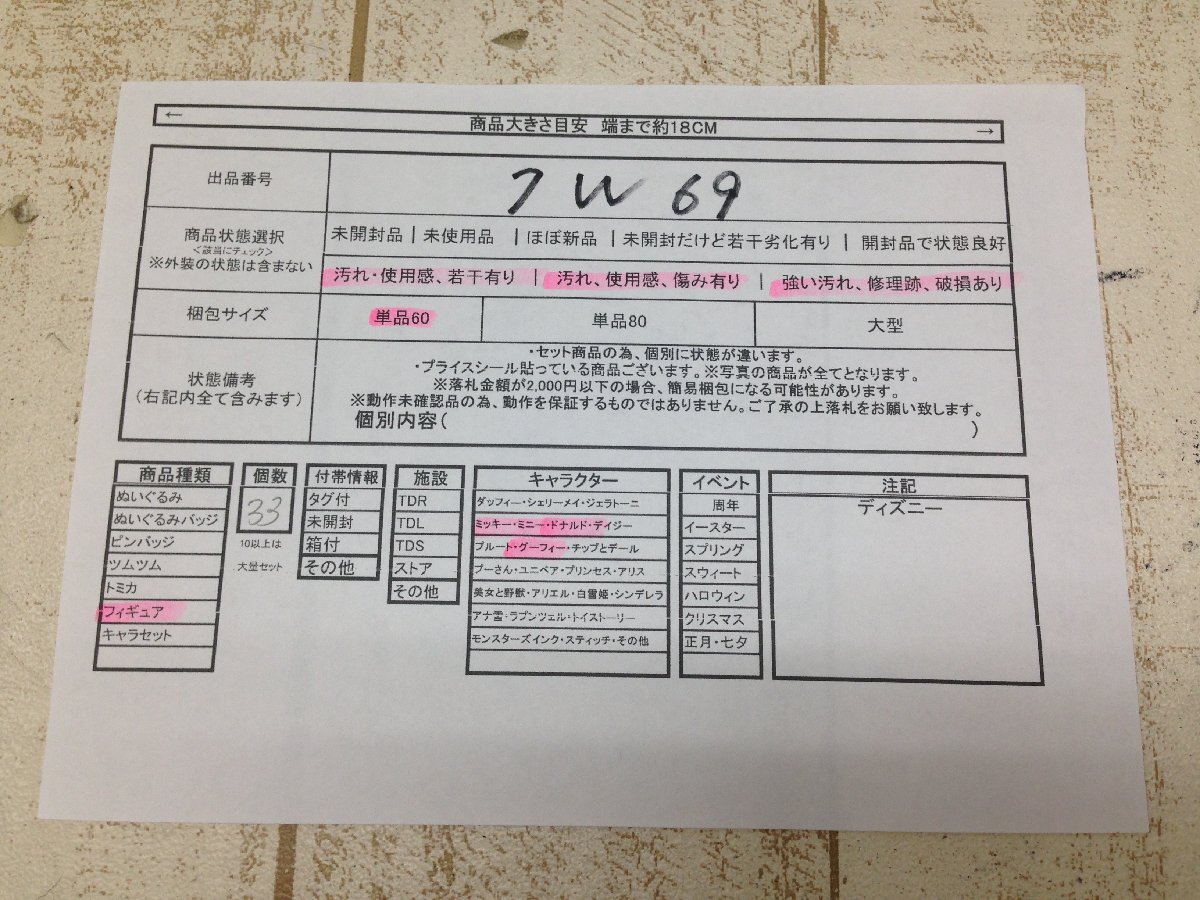 ←
商品大きさ目安 端まで約18CM
→
出品番号
7W69
商品状態選択
<該当にチェック>
※外装の状態は含まない
未開封品|未使用品 |ほぼ新品 |未開封だけど若干劣化有り | 開封品で状態良好
汚れ・使用感、若干有り | 汚れ、使用感、傷み有り | 強い汚れ、修理跡、破損あり
梱包サイズ
単品60
単品80
大型
状態備考
(右記内全て含みます)
・セット商品の為、個別に状態が違います。
・プライスシール貼っている商品ございます。※写真の商品が全てとなります。
※落札金額が2,000円以下の場合、簡易梱包になる可能性があります。
※動作未確認品の為、動作を保証するものではありません。ご了承の上落札をお願い致します。
個別内容( )
商品種類
ぬいぐるみ
ぬいぐるみバッジ
ピンバッジ
ツムツム
トミカ
フィギュア
キャラセット
個数
33
10以上は
大量セット
付帯情報
タグ付
未開封
箱付
その他
施設
TDR
TDL
TDS
ストア
その他
キャラクター
ダッフィー・シェリーメイ・ジェラトーニ
ミッキー・ミニー・ドナルド・デイジー
プルート・グーフィー・チップとデール
プーさん・ユニベア・プリンセス・アリス
美女と野獣・アリエル・白雪姫・シンデレラ
アナ雪・ラプンツェル・トイストーリー
モンスターズインク・スティッチ・その他
イベント
周年
イースター
スプリング
スウィート
ハロウィン
クリスマス
正月・七夕
注記
ディズニー